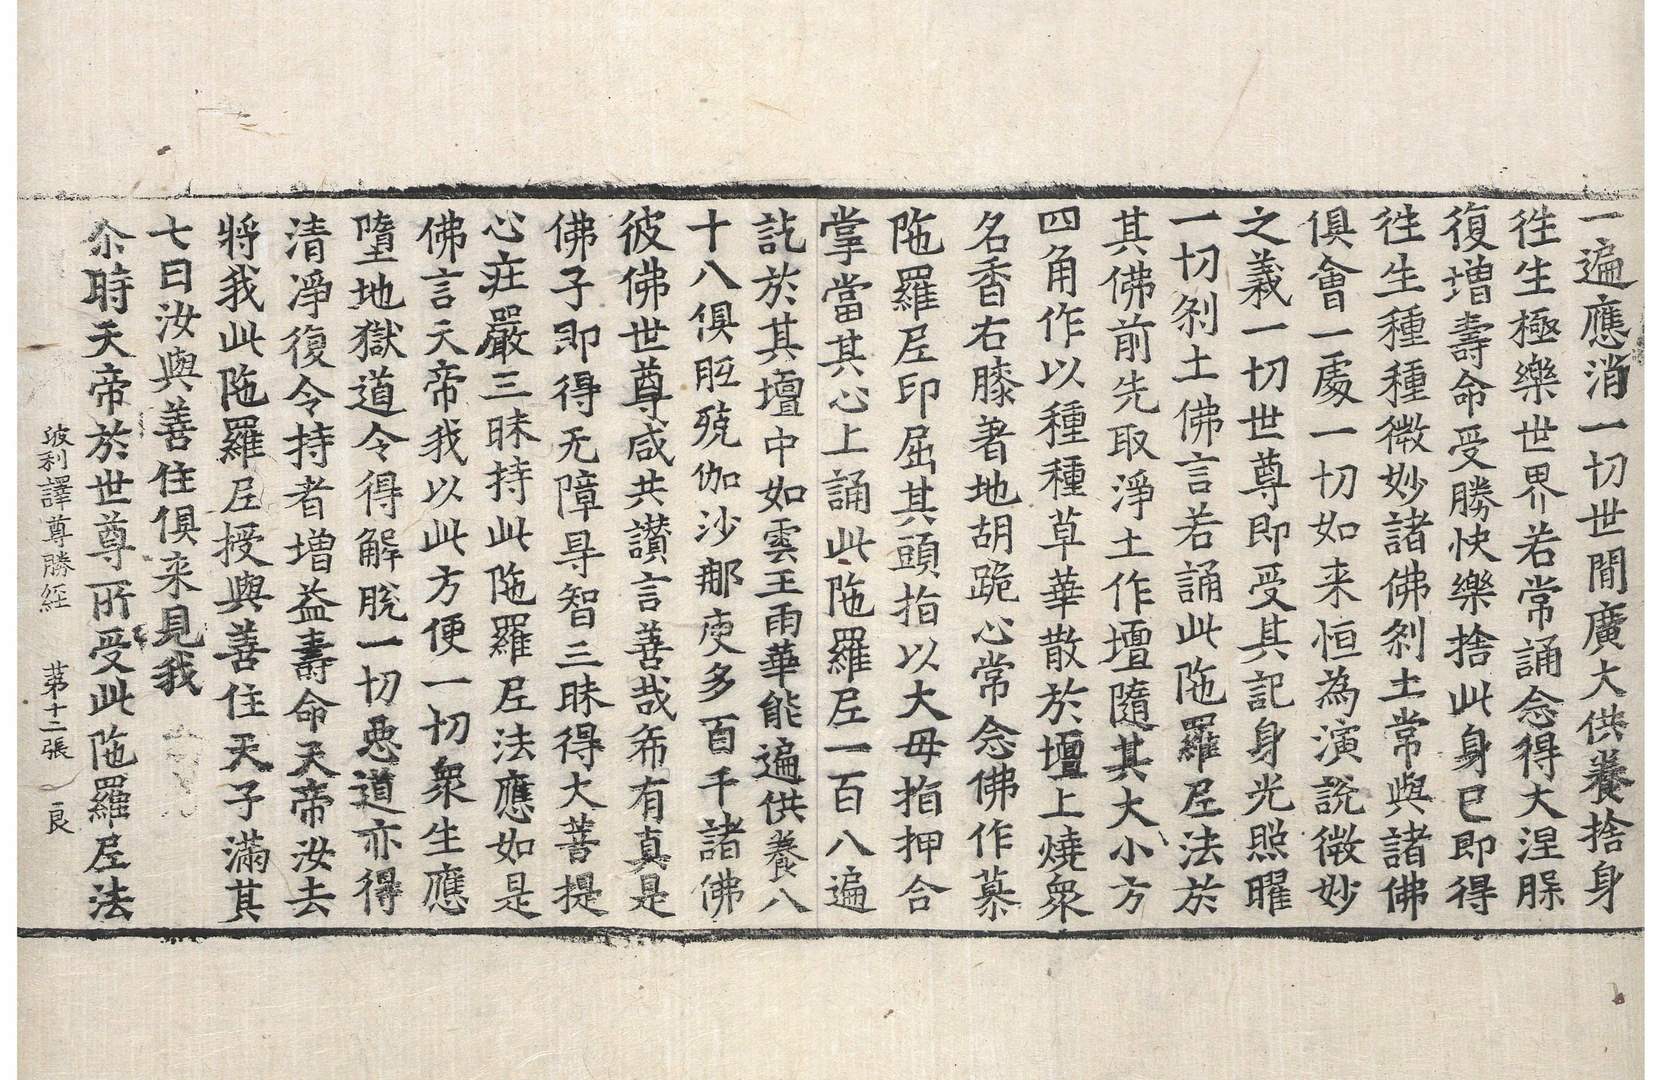 一遍應消一切世間廣大供養捨身
徃生極樂世界若常誦念得大涅脵
復增壽命受勝快樂捨此身已即得
徃生種種微妙諸佛刹土常與諸佛
俱會一處一切如来恒為演說微妙
之義一切世尊即受其記身光照曜
一切刹土佛言若誦此陁羅尼法於
其佛前先取淨土作壇隨其大小方
四角作以種種草華散於壇上燒衆
名香右膝著地胡跪心常念佛作慕
陁羅尼印屈其頭指以大毋指押合
掌當其心上誦此陁羅尼一百八遍
訖於其壇中如雲王雨華能遍供養八
十八俱胝殑伽沙那庾多百千諸佛
彼佛世尊咸共讃言善哉希有真是
佛子即得无障㝵智三昧得大菩提
心莊嚴三昧持此陁羅尼法應如是
佛言天帝我以此方便一切衆生應
墮地獄道令得解脫一切惡道亦得
清淨復令持者增益壽命天帝汝去
將我此陁羅尼授與善住天子滿其
七日汝與善住俱来見我
尒時天帝於世尊所受此陁羅尼法
波利譯尊勝經 苐十二張 良